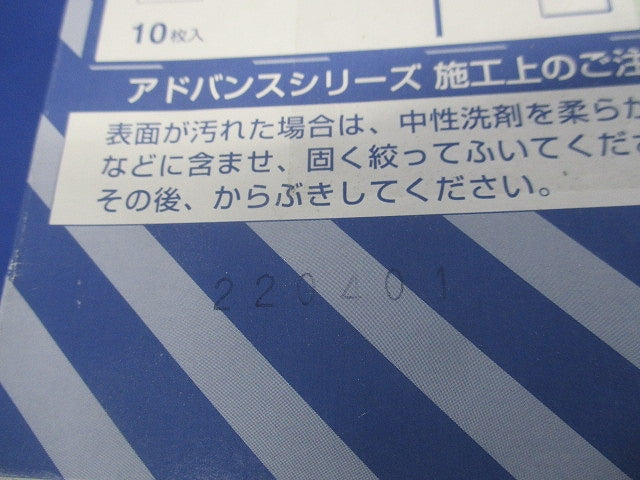 10枚入
アドバンスシリーズ 施工上のご注
表面が汚れた場合は、中性洗剤を柔らか
などに含ませ、固く絞ってふいてくださ
その後、からぶきしてください。
220401